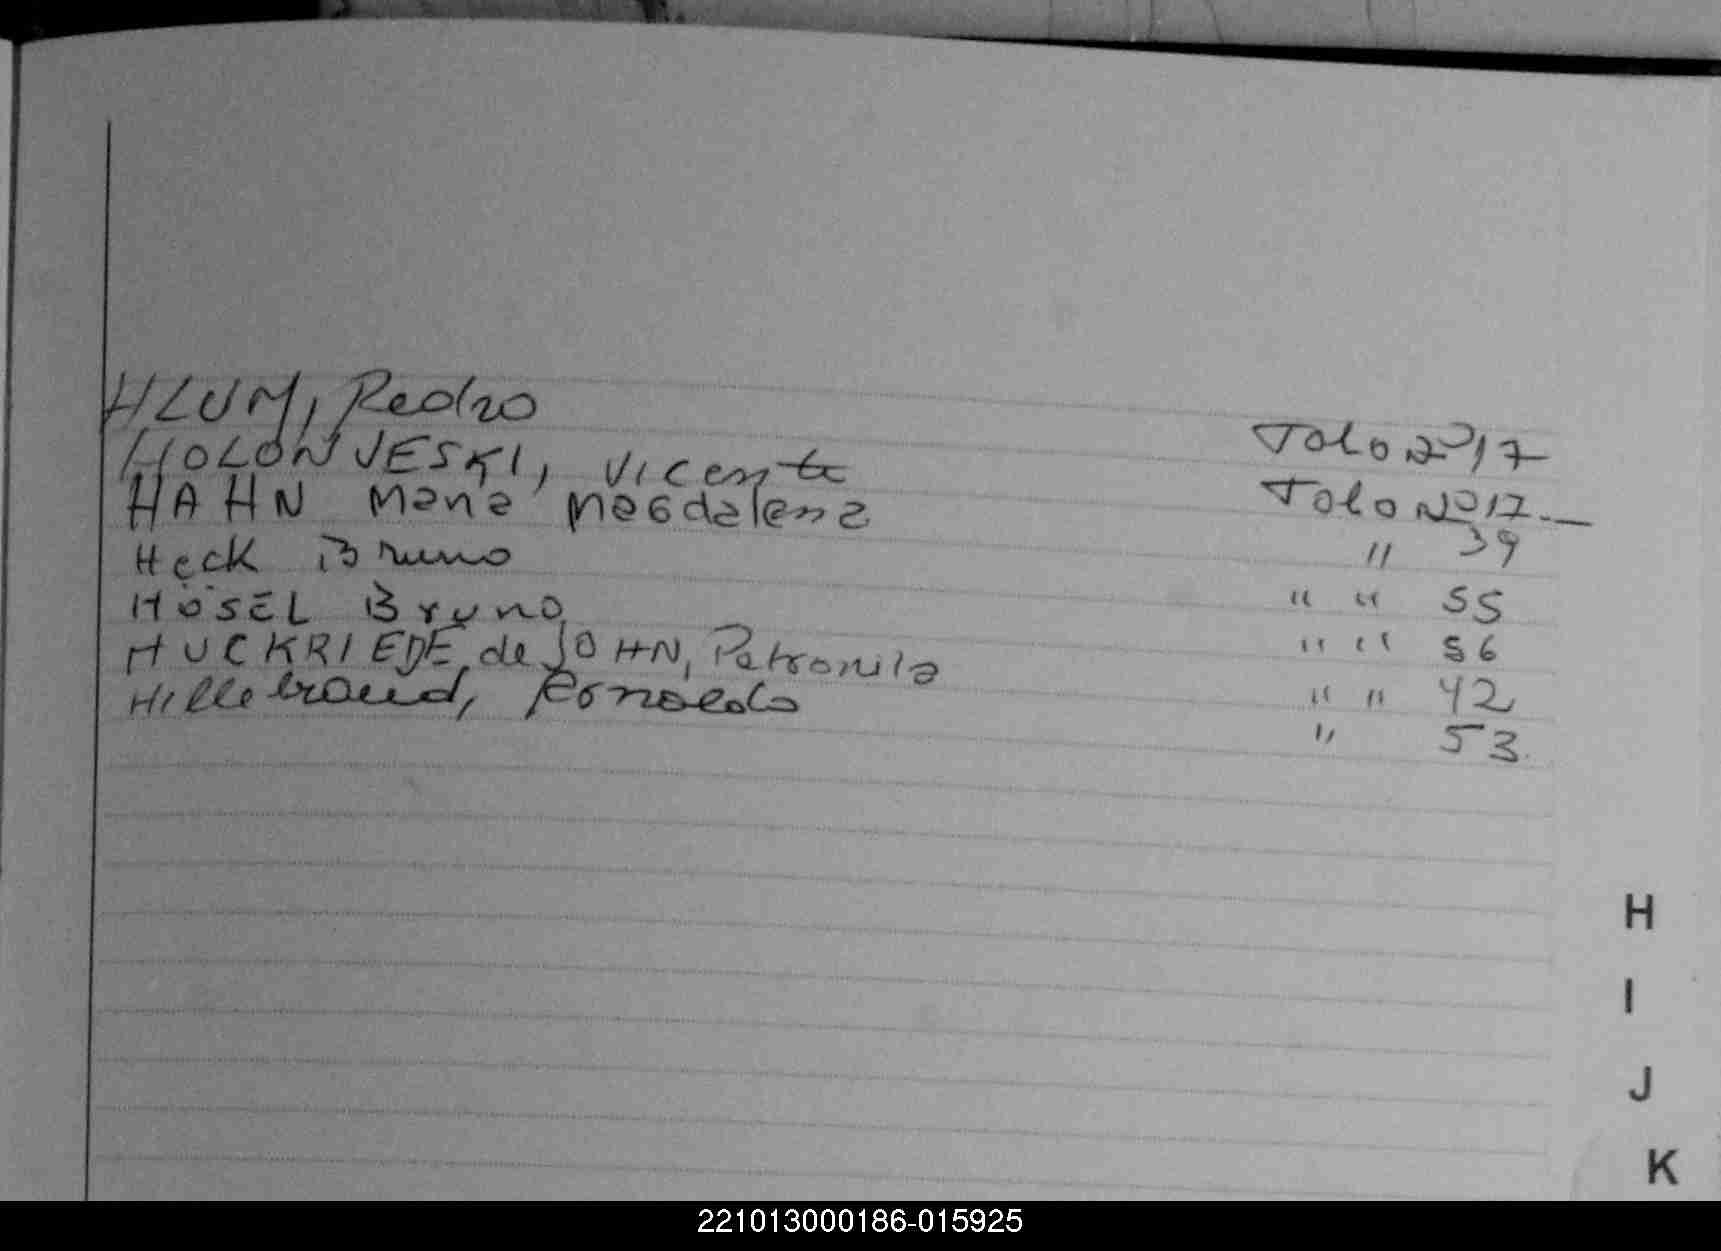 HLUM, Pedro Tolo Nº 17
HOLONVESKI, Vicente Tolo Nº 17.-
HAHN Maria Magdalena " 39
Heck Bruno " " 55
HÖSEL Bruno " " 56
HUCKRIEDE de JOHN, Petronila " " 42
Hillebrand, " 53.
H
I
J
K
221013000186-015925